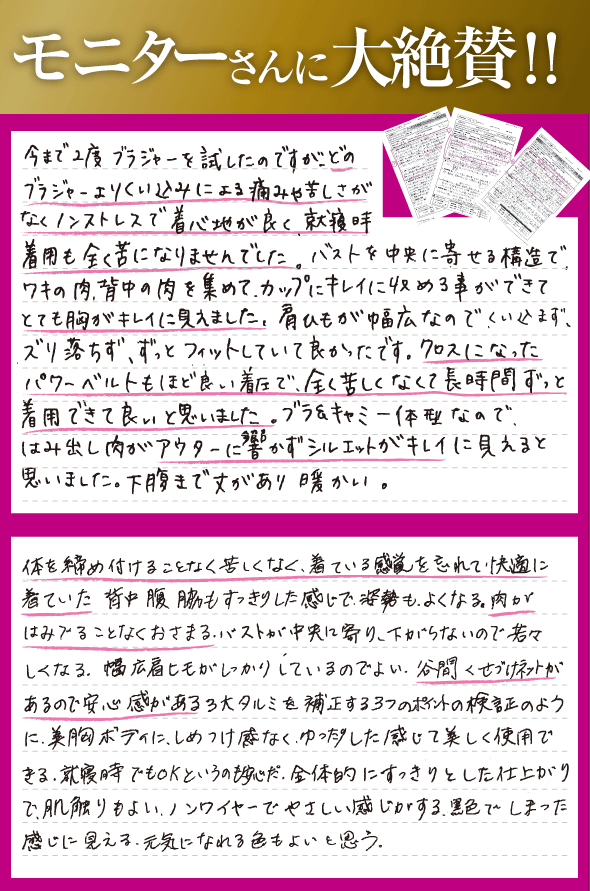 モニターさんに大絶賛!!
今まで2度ブラジャーを試したのですが、どの
ブラジャーよりくい込みによる痛みや苦しさが
なくノンストレスで着心地が良く、就寝時
着用も全く苦になりませんでした。バストを中央に寄せる構造で、
ワキの肉、背中の肉を集めて、カップにキレイに収める事ができて
とても胸がキレイに見えました。肩ひもが幅広なので、くい込まず、
ズリ落ちず、ずっとフィットしていて良かったです。クロスになった
パワーベルトもほど良い着圧で、全く苦しくなくて長時間ずっと
着用できて良いと思いました。ブラ&キャミ一体型なので、
はみ出し肉がアウターに響かずシルエットがキレイに見えると
思いました。下腹まで丈があり暖かい。
体を締め付けることなく苦しくなく、着ている感覚を忘れて、快適に
着ていた 背中腹脇もすっきりした感じで姿勢も、よくなる。肉が
はみでることなくおさまる。バストが中央に寄り、下がらないので若々
しくなる。幅広肩ヒモがしっかりしているのでよい。谷間くせづけネットが
あるので安心感がある3大タルミを補正する3つのポイントの検証のよう
に、美胸ボディに、しめつけ感なく、ゆったりした感じで美しく使用で
きる。就寝時でもOKというのも安心だ。全体的にすっきりとした仕上がり
で、肌触りもよい、ノンワイヤーでやさしい感じがする。黒色でしまった
感じに見える。元気になれる色もよいと思う。